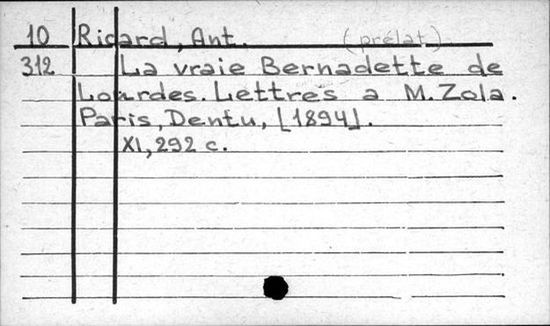 10 Ricard, Ant. (prélat)
312 La vraie Bernadette de
Lourdes. Lettres a M. Zola.
Paris, Dentu, [1894].
XI, 292 c.